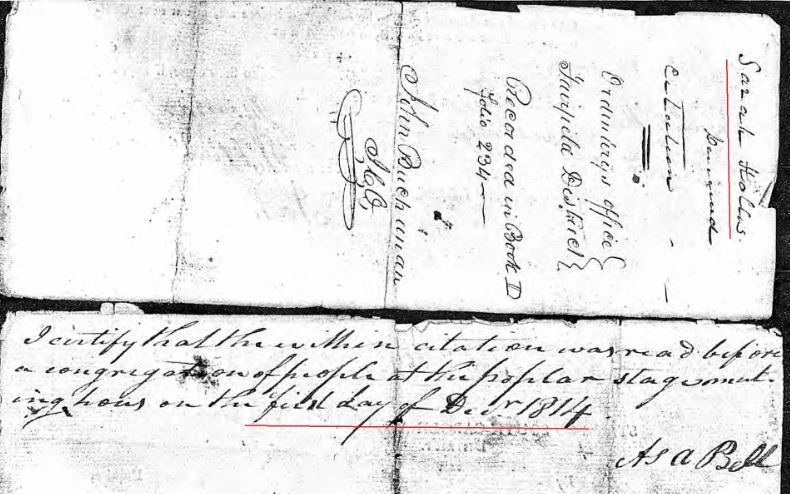 Sarah Hollis
deceased
Citation
Ordinarys office
Fairfield District
Recorded in Book D
folio 234
John Buchanan
I certify that the within citation was read before
a congregation of people at the poplar stage meet-
ing hous on the first day of Decr 1814
Asa Bell